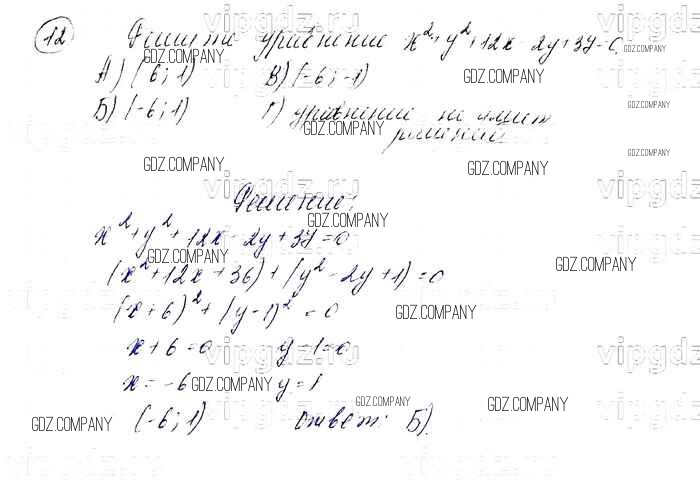 12 Решите уравнение x²+y²+12x-2y+37=0.
А) (6; 1) В) (-6; -1)
Б) (-6; 1) Г) уравнение не имеет
решений
Решение:
x²+y²+12x-2y+37=0
(x²+12x+36)+(y²-2y+1)=0
(x+6)²+(y-1)²=0
x+6=0 y-1=0
x=-6 y=1
(-6; 1) Ответ: Б).
vipgdz.ru
GDZ.COMPANY